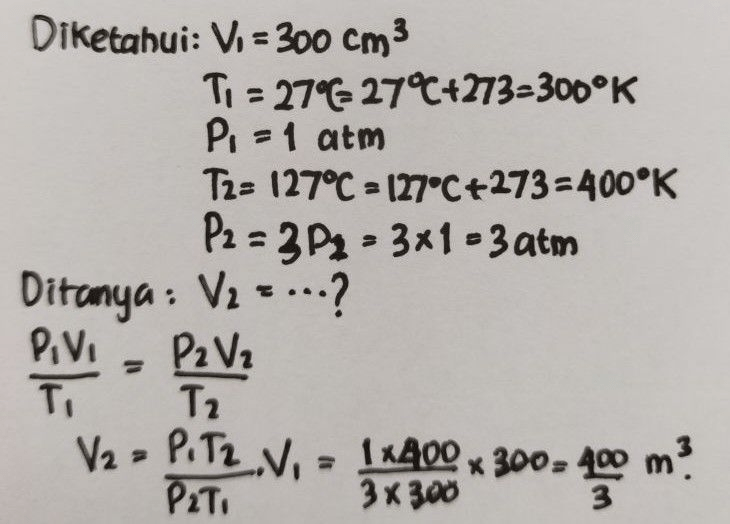 Diketahui: V₁ = 300 cm³
T₁ = 27°C = 27°C + 273 = 300°K
P₁ = 1 atm
T₂ = 127°C = 127°C + 273 = 400°K
P₂ = 3P₁ = 3 × 1 = 3 atm
Ditanya: V₂ = ...?
P₁V₁/T₁ = P₂V₂/T₂
V₂ = P₁T₂/P₂T₁ . V₁ = 1 × 400/3 × 300 × 300 = 400/3 m³.